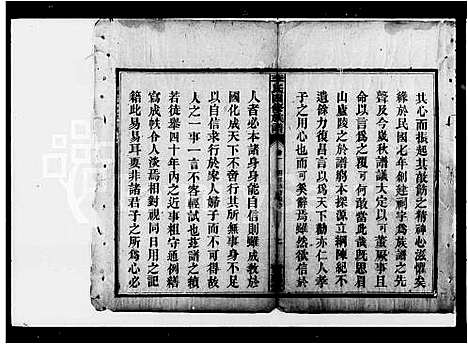 其心而振起其敝飭之精神心滋懼矣
緣於民國老年創建祠宇爲族譜之先
聲及今歲秋譜議大定以可董厥事且
命以言爲之覆不敢何敢當此義爲
山廬陵之於譜窮本探源立綱陳紀不
遺餘力復昌言以爲天下勸亦仁人孝
子之用心也而可矣辭焉雖然欲信於
人者必本諸身身能自信則雖成教於
國化成天下不啻行其所無事身不足
以自信求行於家人婦子而不可得焉
人之一事一言不容輕試也茲譜之續
若徒舉四十年內之近事粗守通例繕
寫成帙令人淡焉相對視同日用之記
籍此易易耳要非諸君子之所爲心必